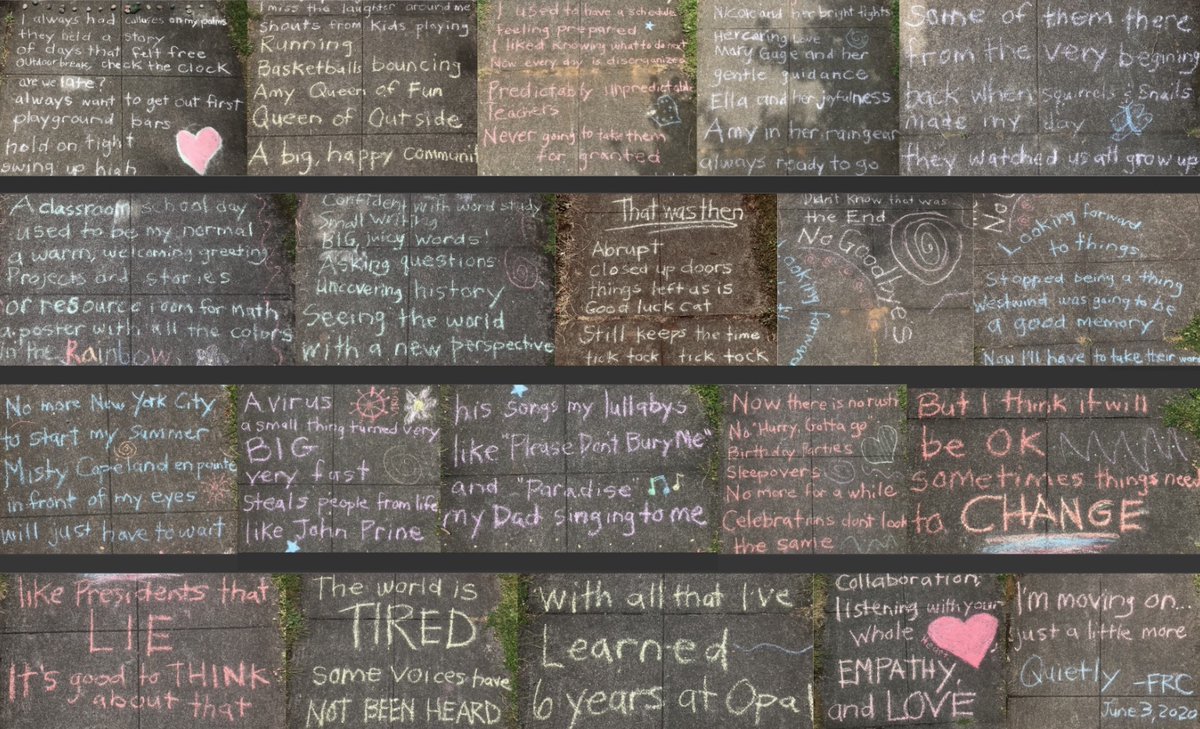 I always had calluses on my palms
they held a story
of days that felt free
outdoor break, check the clock
are we late?
always want to get out first
playground bars
hold on tight
swing up high
I miss the laughter around me
shouts from kids playing
Running
Basketballs bouncing
Amy Queen of Fun
Queen of Outside
A big, happy communi
I used to have a schedule
feeling prepared
I liked knowing what to do next
Now every day is disorganized
Predictably unpredictable
Teachers
Never going to take them
for granted
Nicole and her bright tights
Her caring love
Mary Gage and her
gentle guidance
Ella and her joyfulness
Amy in her raingear
always ready to go
Some of them there
from the very begining
back when squirrels & snails
made my day
they watched us all grow up
A classroom school day
used to be my normal
a warm, welcoming greeting
Projects and stories
or resource room for math
a poster with all the colors
in the Rainbow
Confident with word study
Small writing
BIG, juicy words!
Asking questions
uncovering history
Seeing the world
with a new perspective
That was then
Abrupt
Closed up doors
things left as is
Good luck cat
Still keeps the time
tick tock tick tock
Didn't know that was
the End
No Goodbyes
Looking forward
No
Looking forward
to things,
Stopped being a thing
Westwind was going to be
a good memory
Now I'll have to take their word
No more New York City
to start my summer
Misty Copeland en pointe
in front of my eyes
will just have to wait
A virus
a small thing turned very
BIG
very fast
steals people from life
like John Prine
his songs my lullabys
like "Please Don't Bury Me"
and "Paradise"
my Dad singing to me
Now there is no rush
No "Hurry, Gotta go
Birthday Parties
Sleepovers
No more for a while
Celebrations dont look
the same
But I think it will
be OK
sometimes things need
to CHANGE
like Presidents that
LIE
It's good to THINK
about that
The world is
TIRED
some voices have
NOT BEEN HEARD
With all that I've
Learned
6 years at Opal
Collaboration,
listening with your
whole heart
EMPATHY,
and LOVE
I'm moving on...
just a little more
Quietly -FRC
June 3, 2020